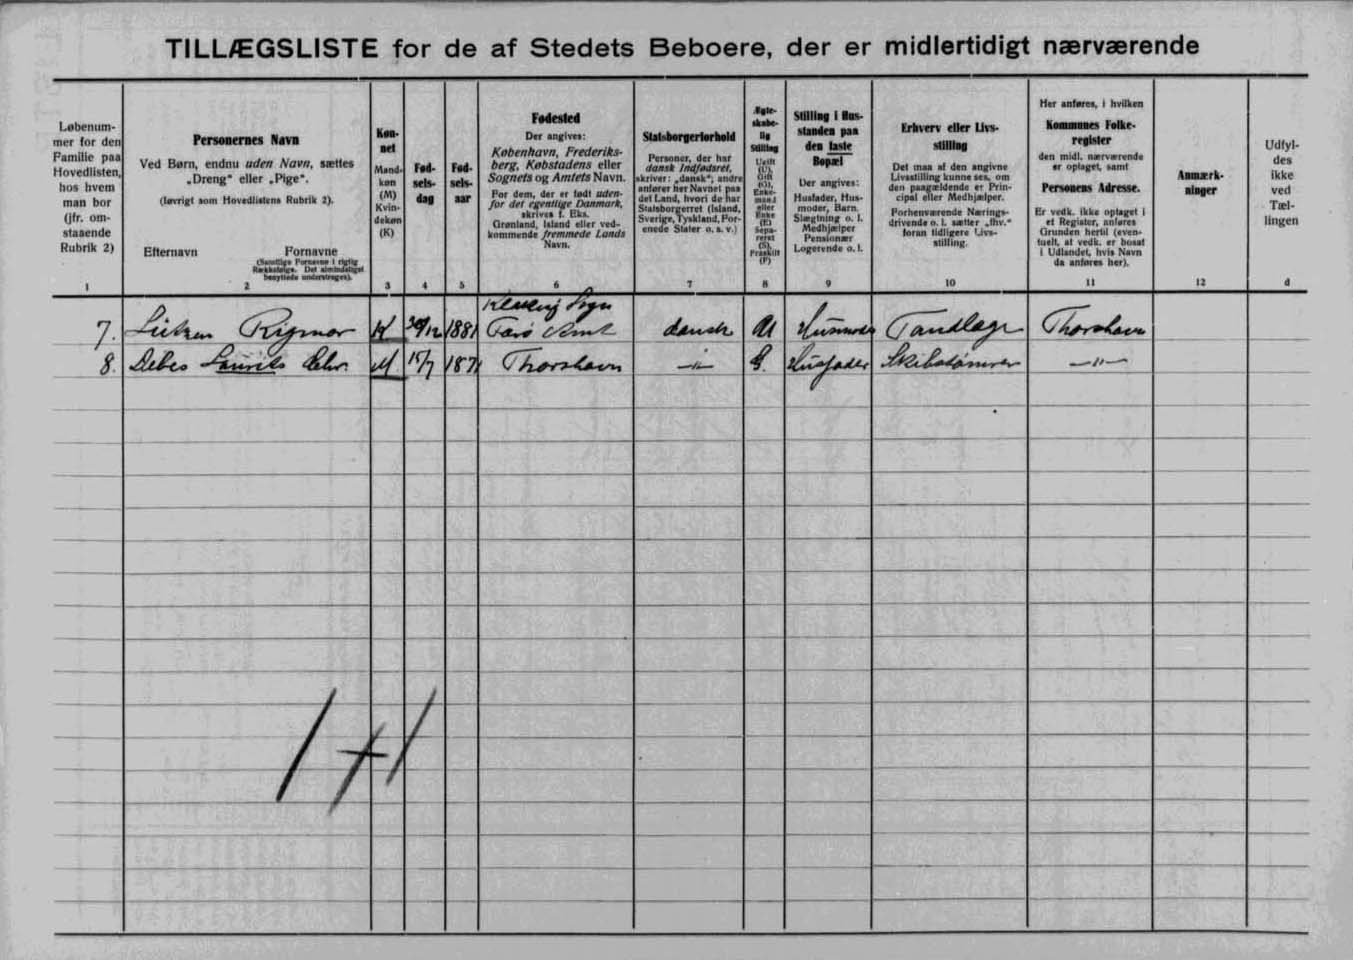 TILLÆGSLISTE for de af Stedets Beboere, der er midlertidigt nærværende
Løbenum-
mer for den
Familie paa
Hovedlisten,
hos hvem
man bor
(jfr. om-
staaende
Rubrik 2)
1
Personernes Navn
Ved Børn, endnu uden Navn, sættes
„Dreng“ eller „Pige“.
(Iøvrigt som Hovedlistens Rubrik 2).
Efternavn Fornavne
(Samtlige Fornavne i rigtig
Rækkefølge. Det almindeligst
benyttede understreges).
2
Køn-
net
Mand-
køn
(M)
Kvin-
dekøn
(K)
3
Fød-
sels-
dag
4
Fød-
sels-
aar
5
Fødested
Der angives:
København, Frederiks-
berg, Købstadens eller
Sognets og Amtets Navn.
For dem, der er født uden-
for det egentlige Danmark,
skrives f. Eks.
Grønland, Island eller ved-
kommende fremmede Lands
Navn.
6
Statsborgerforhold
Personer, der har
dansk Indfødsret,
skriver: „dansk“; andre
anfører her Navnet paa
det Land, hvori de har
Statsborgerret (Island,
Sverige, Tyskland, For-
enede Stater o. s. v.)
7
Ægte-
skabe-
lig
Stilling
Ugift
(U),
Gift
(G),
Enke-
mand
eller
Enke
(E)
Sepa-
reret
(S),
Fraskilt
(F)
8
Stilling i Hus-
standen paa
den faste
Bopæl
Der angives:
Husfader, Hus-
moder, Barn,
Slægtning o. l.
Medhjælper
Pensionær
Logerende o. l.
9
Erhverv eller Livs-
stilling
Det maa af den angivne
Livsstilling kunne ses, om
den paagældende er Prin-
cipal eller Medhjælper.
Forhenværende Nærings-
drivende o. l. sætter „fhv.“
foran tidligere Livs-
stilling.
10
Her anføres, i hvilken
Kommunes Folke-
register
den midl. nærværende
er optaget, samt
Personens Adresse.
Er vedk. ikke optaget i
et Register, anføres
Grunden hertil (even-
tuelt, at vedk. er bosat
i Udlandet, hvis Navn
da anføres her).
11
Anmærk-
ninger
12
Udfyl-
des
ikke
ved
Tæl-
lingen
d
Sogn
7. Lützen Rigmor K 30/12 1881 Færø Amt dansk U Husmoder Tandlæge Thorshavn
8. Debes Laurits Chr. M 15/7 1871 Thorshavn —"— G. Husfader Skibstømrer —"—
1 + 1